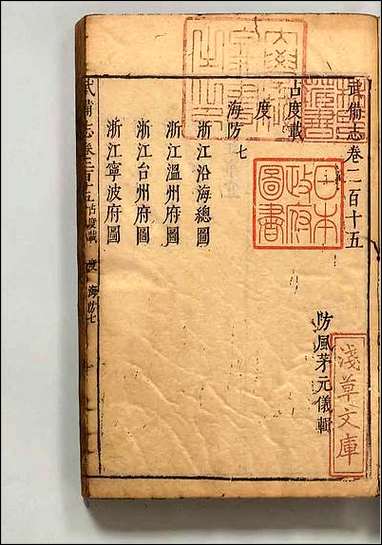 武備志卷二百十五
防風茅元儀輯
占度載
度
海防七
浙江沿海總圖
浙江溫州府圖
浙江台州府圖
浙江寧波府圖
武備志卷二百十五 占度載 度 海防七
日本政府圖書
淺草文庫